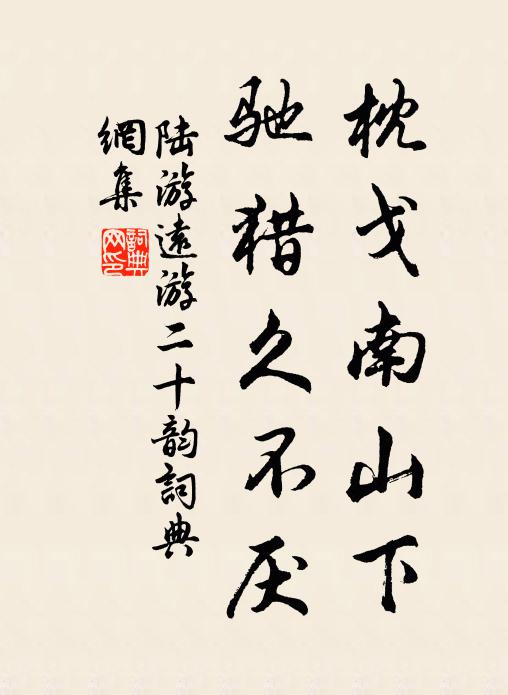 枕戈南山下
驰猎久不厌
陆游遠游二十韵詞典
網集
詞典
网印